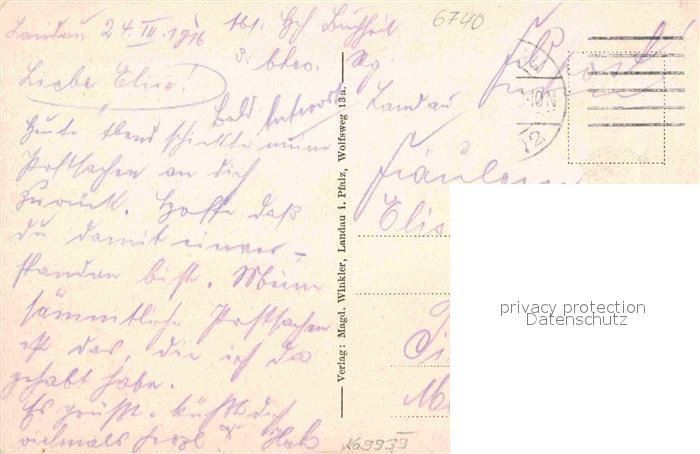 Landau 24. III. 1916
Hch Buchheit
6740
Feldpost
Liebe Elise!
Landau
Bald Antwort
Heute Abend schickte
Postsachen an dich
zurück. Hoffe daß
du damit einver-
standen bist. Meine
sämmtliche Postsachen
ist das, die ich da
gehabt habe.
Es grüßt u. küßt dich
vielmals herzl
Fräulein
Elis
Verlag: Magd. Winkler, Landau i. Pfalz, Wolfsweg 13a.
privacy protection
Datenschutz